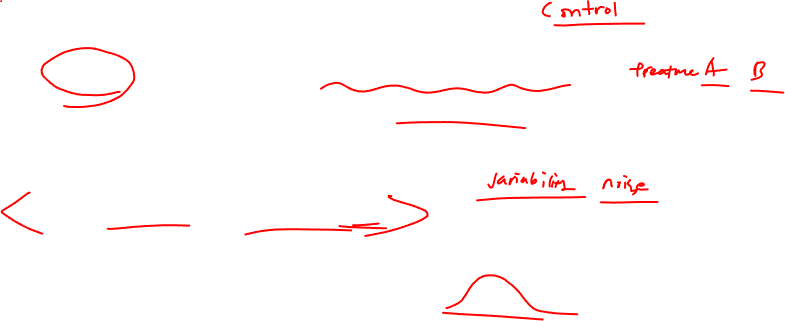 Control
treatment A B
variability noise